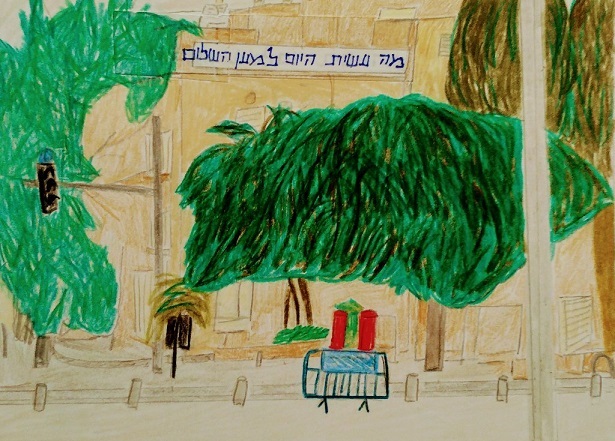 מה עשית היום למען השלום